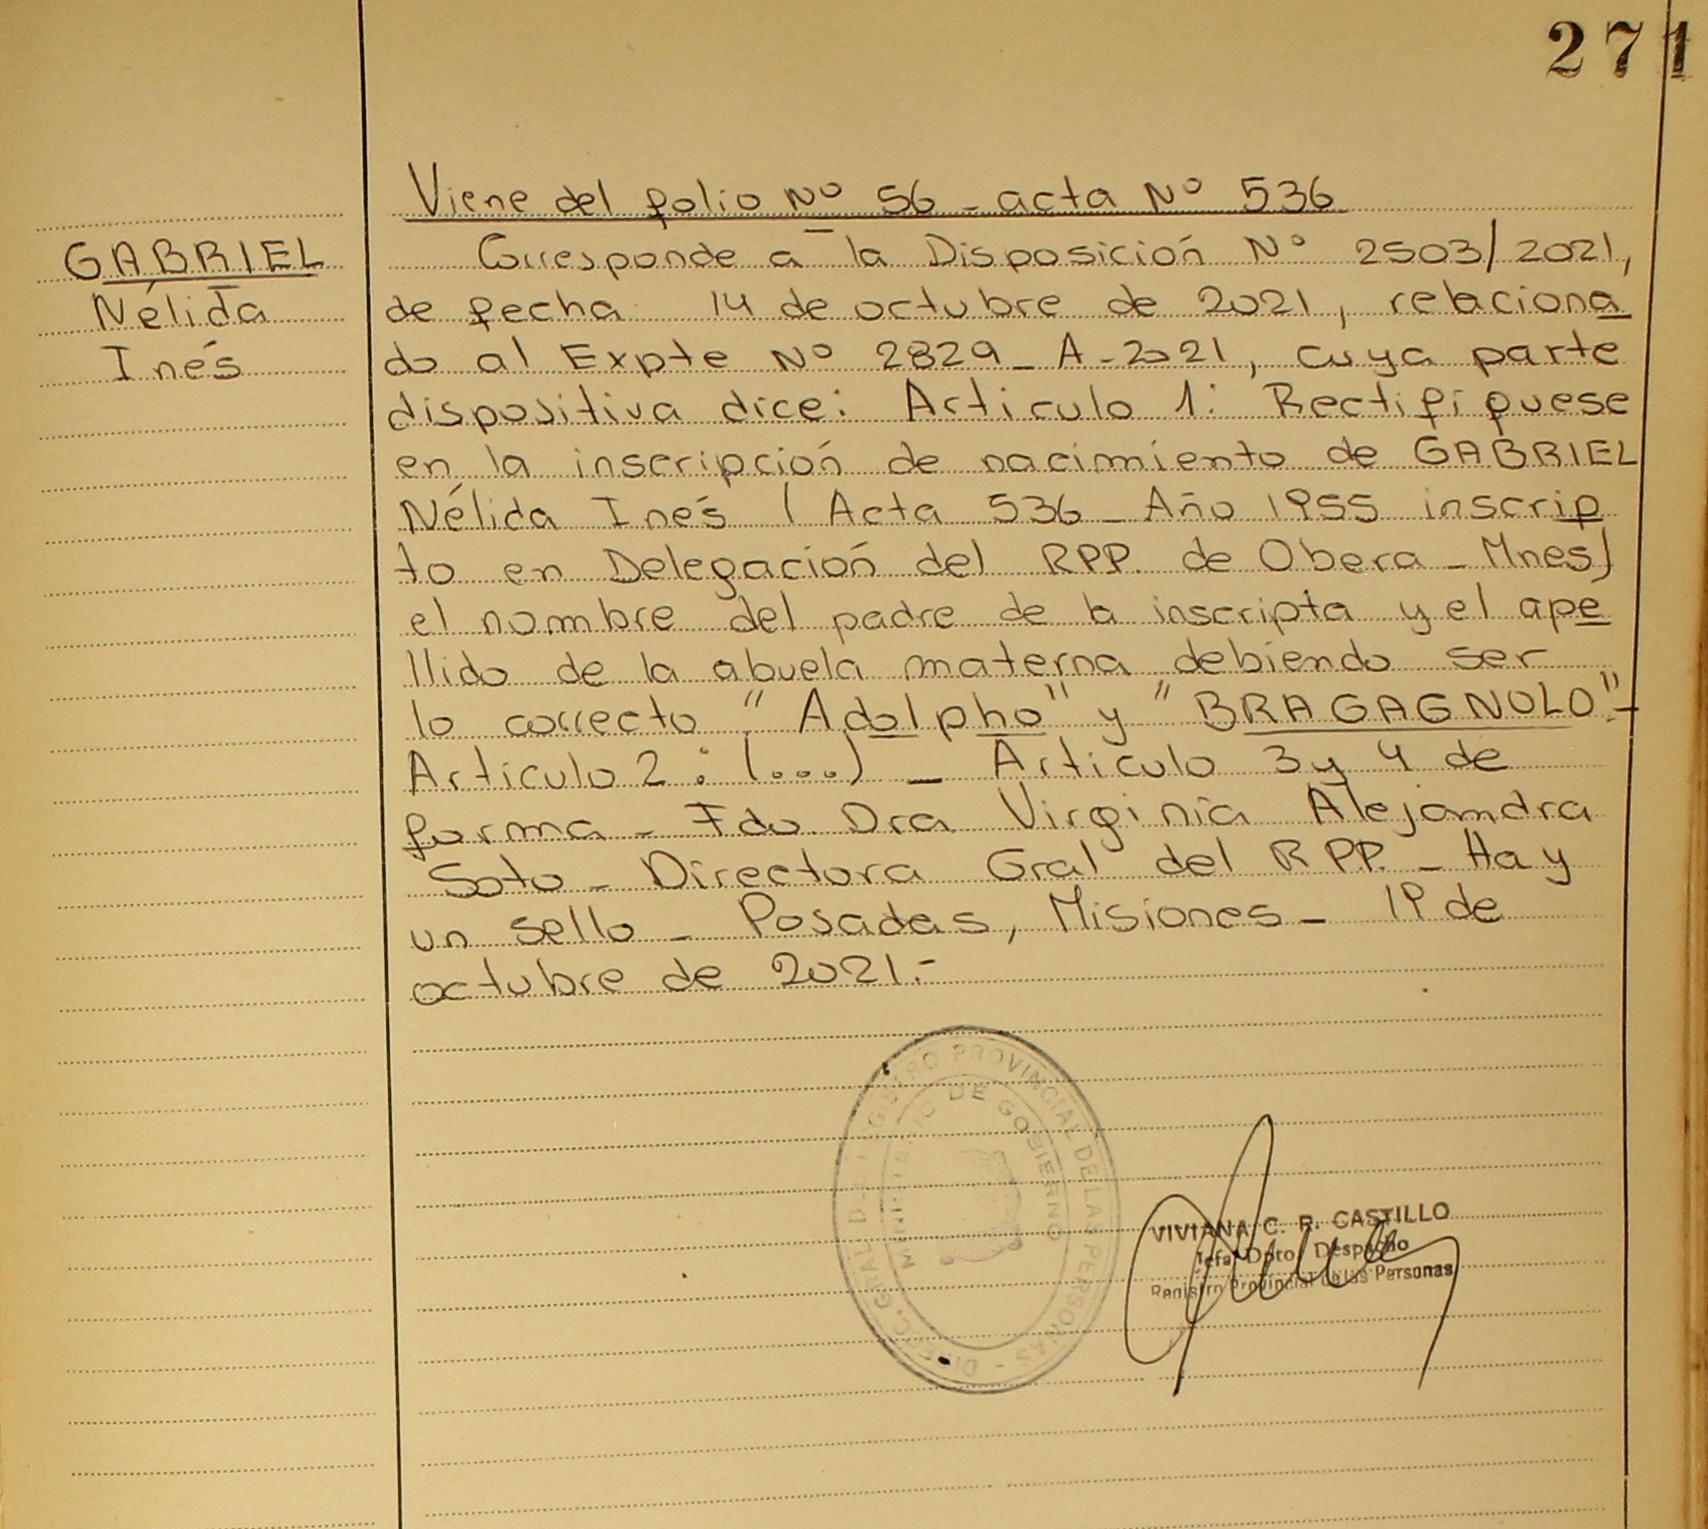 271
GABRIEL
Nélida
Inés
Viene del folio Nº 56 - acta Nº 536
Corresponde a la Disposición Nº 2503/2021,
de fecha 14 de octubre de 2021, relaciona
do al Expte Nº 2829 - A - 2021, cuya parte
dispositiva dice: Articulo 1: Rectifiquese
en la inscripción de nacimiento de GABRIEL
Nélida Inés (Acta 536 - Año 1955 inscrip
to en Delegación del RPP. de Obera - Mnes)
el nombre del padre de la inscripta y el ape
llido de la abuela materna debiendo ser
lo correcto "Adolpho" y "BRAGAGNOLO".-
Articulo 2: (...) - Articulo 3 y 4 de
forma - Fdo. Dra Virginia Alejandra
Soto - Directora Gral del RPP. - Hay
un sello - Posadas, Misiones - 19 de
octubre de 2021.-
DIREC. GRAL. DEL REGISTRO PROVINCIAL DE LAS PERSONAS -
MINISTERIO DE GOBIERNO
VIVIANA C. R. CASTILLO
Jefa Dpto. Despacho
Registro Provincial de las Personas